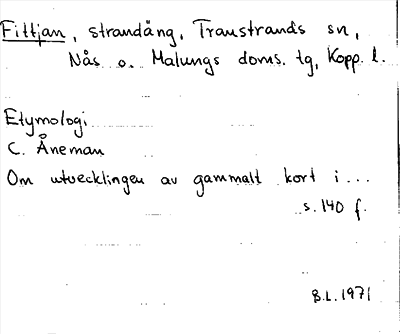 Fittjan, strandäng, Transtrands sn,
Nås o. Malungs doms. tg, Kopp. l.
Etymologi
C. Åneman
Om utvecklingen av gammalt kort i...
s. 140 f.
B.L. 1971